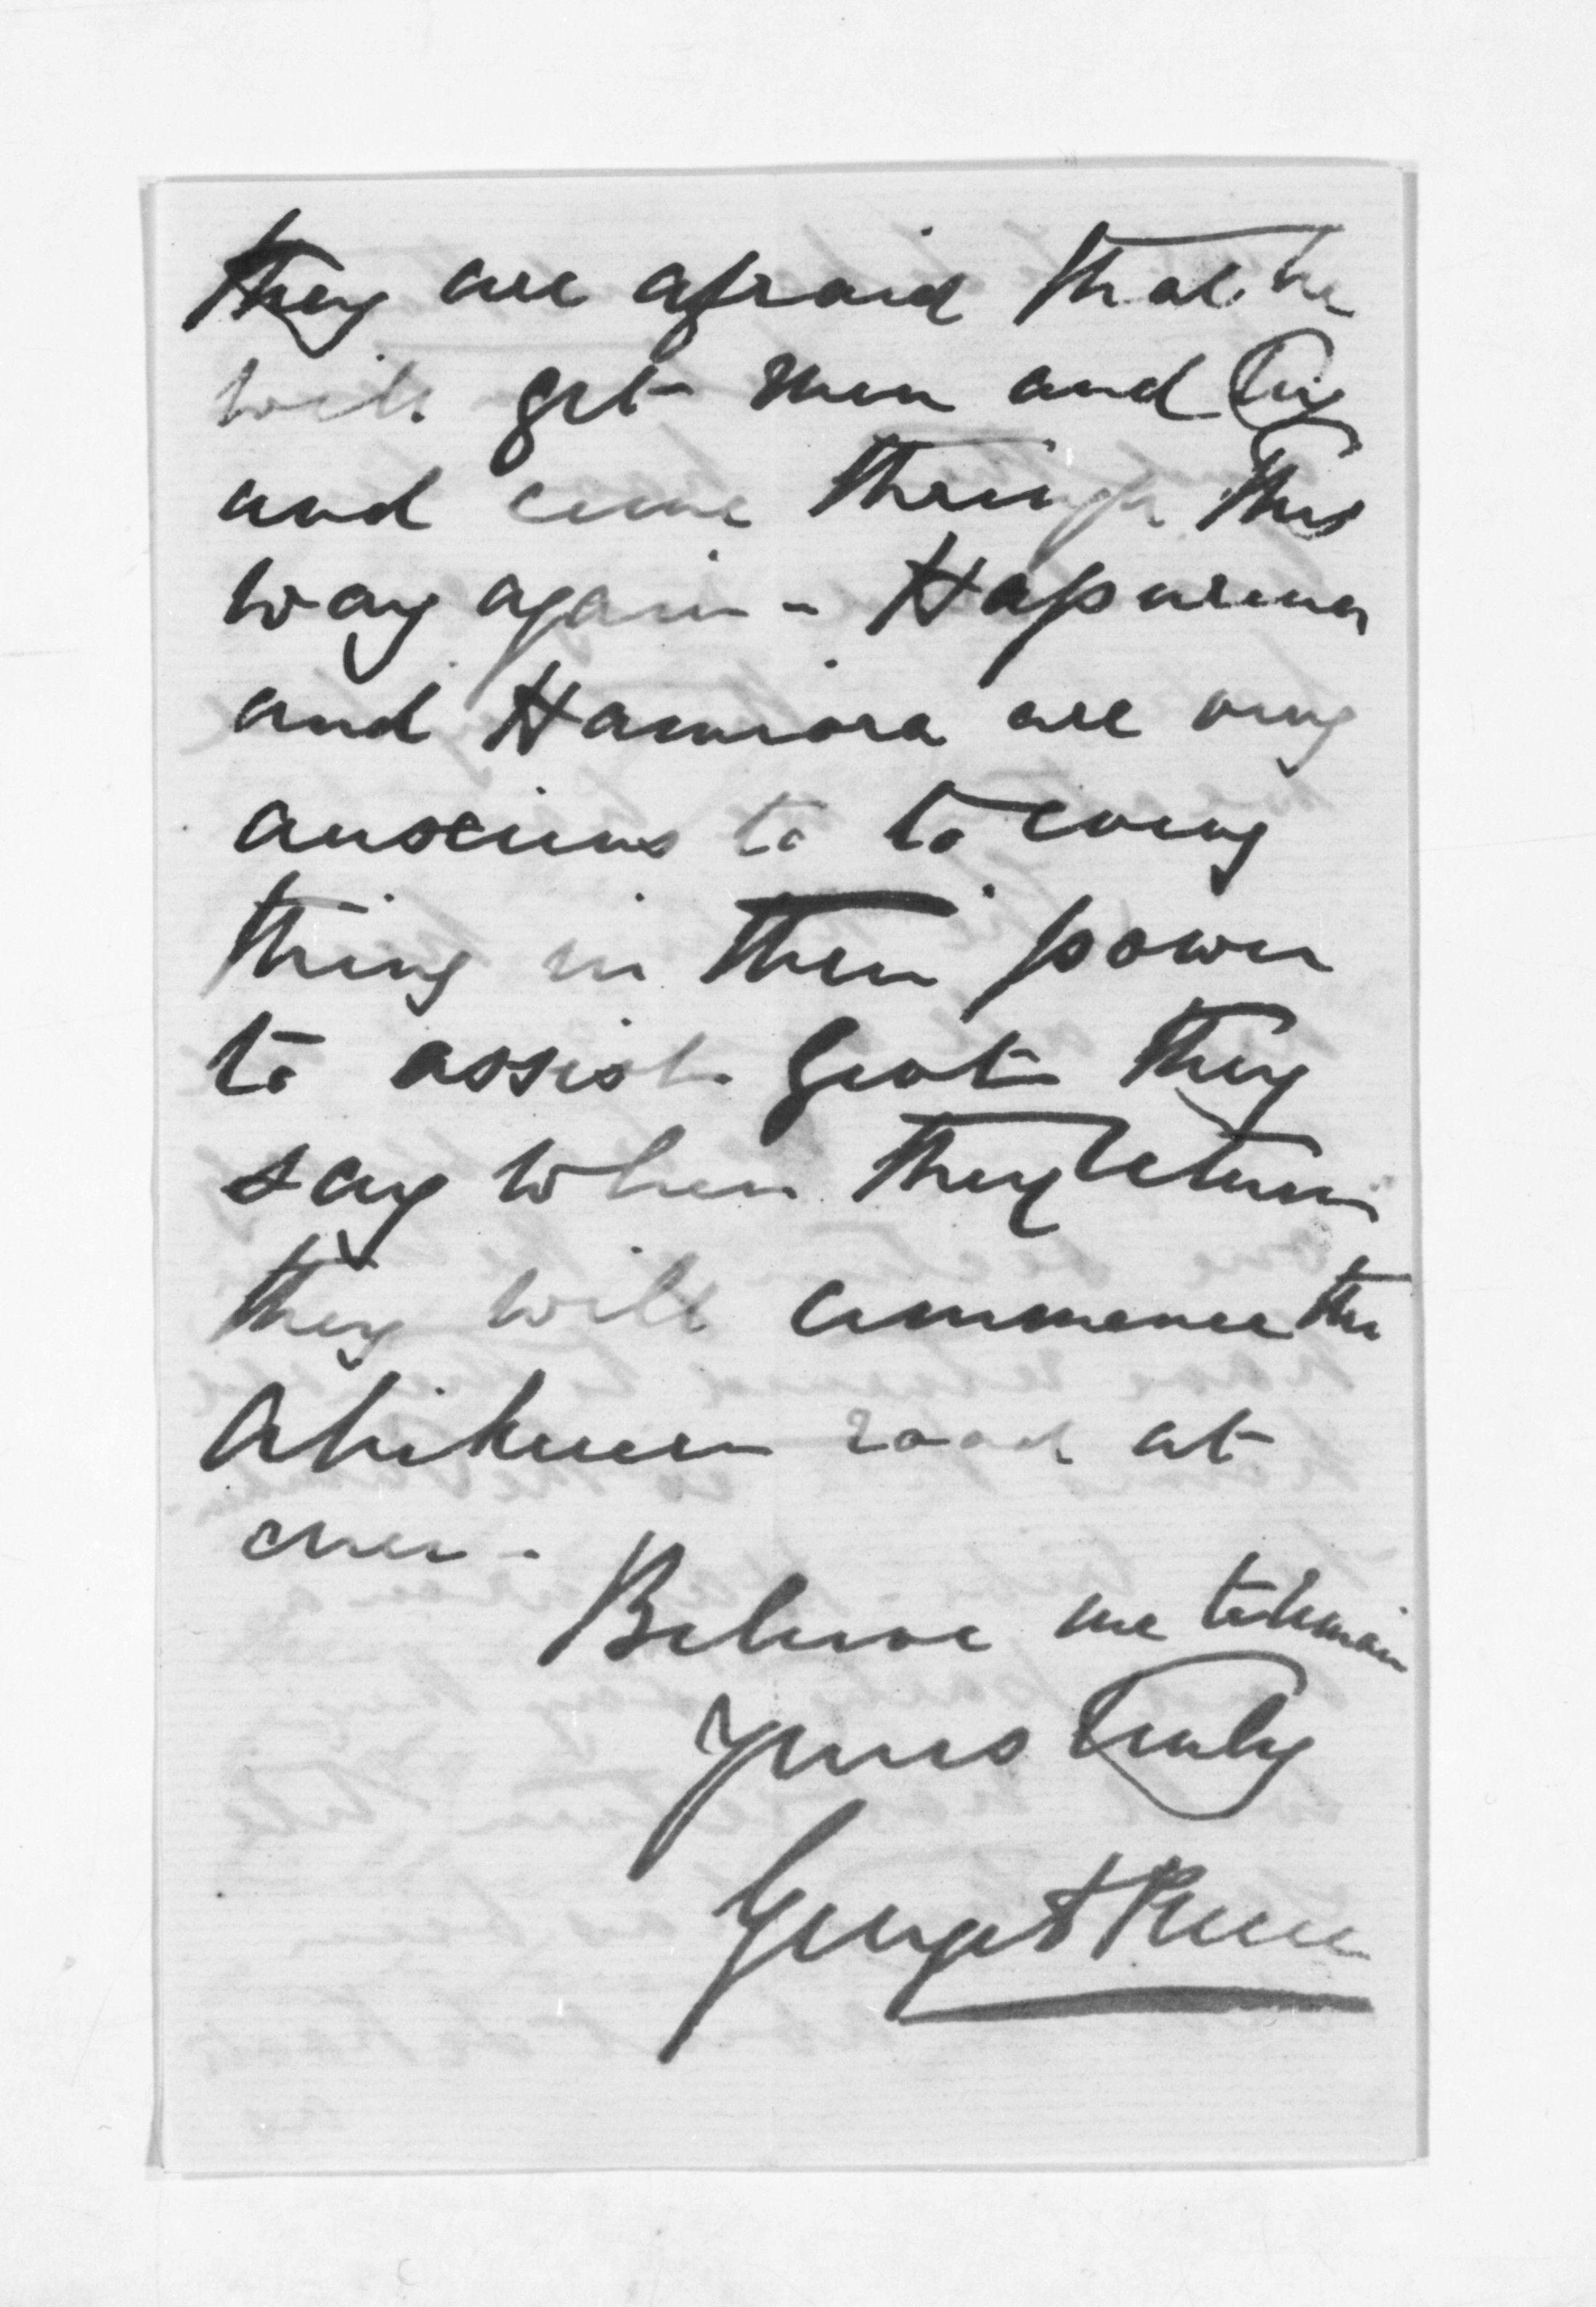 they are afraid that he
will get men and try
and come through this
way again - Hapurona
and Hamiora are very
anxious to to every
thing in their power
to assist Govt they
say when they return
they will commence the
Ahikereru road at
once -
Believe me to remain
Yours truly
George Preece